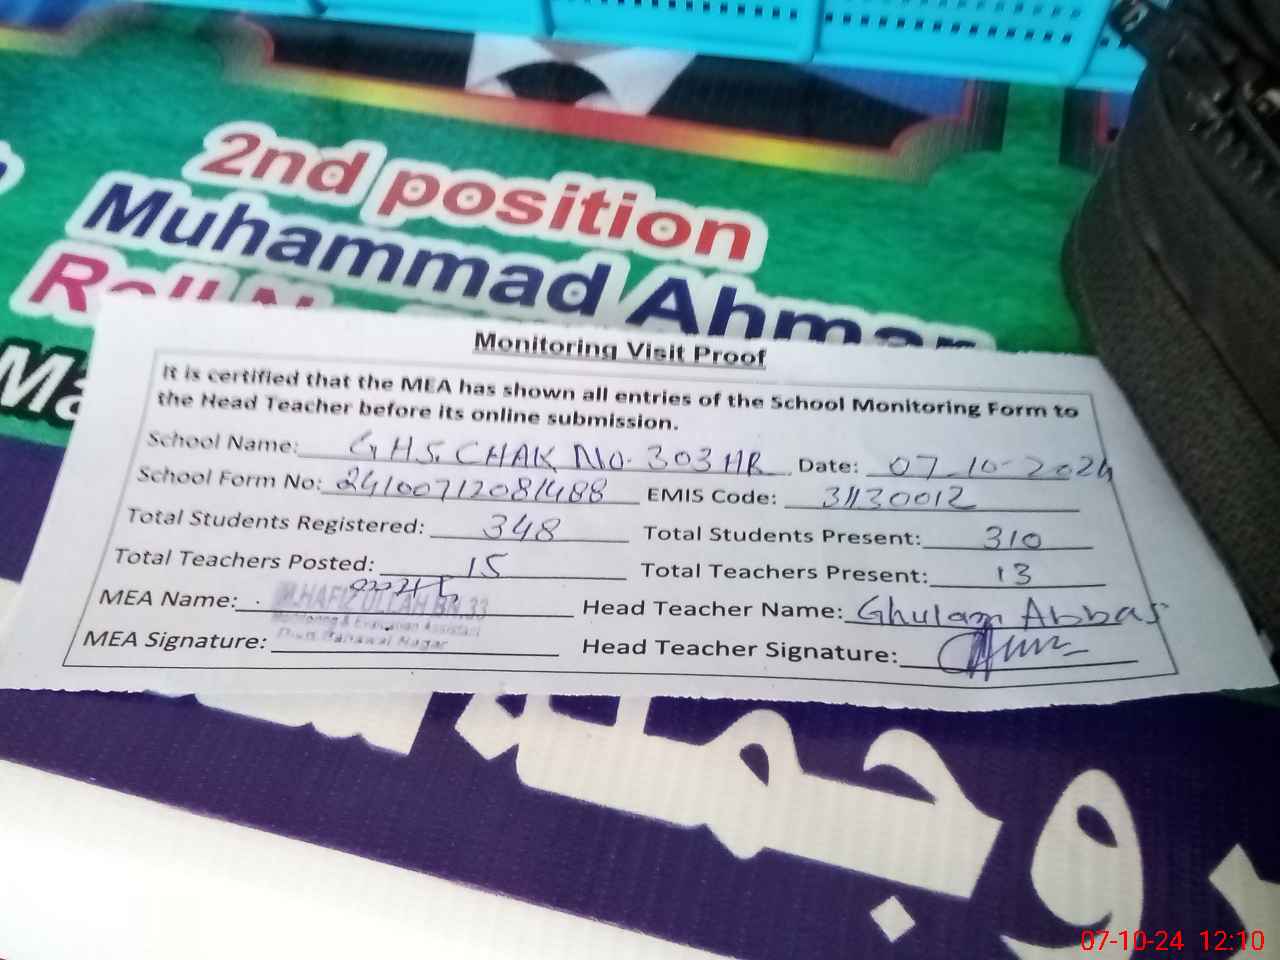 2nd position
Muhammad Ahmad
Roll No
Monitoring Visit Proof
It is certified that the MEA has shown all entries of the School Monitoring Form to
the Head Teacher before its online submission.
School Name: GHS. CHAK No. 303HR Date: 07-10-2024
School Form No: 24100712081488 EMIS Code: 31130012
Total Students Registered: 348 Total Students Present: 310
Total Teachers Posted: 15 Total Teachers Present: 13
MEA Name: M.HAFIZ ULLAH BN 33 Head Teacher Name: Ghulam Abbas
Monitoring & Evaluation Assistant
MEA Signature: Distt. Bahawal Nagar Head Teacher Signature:
07-10-24 12:10